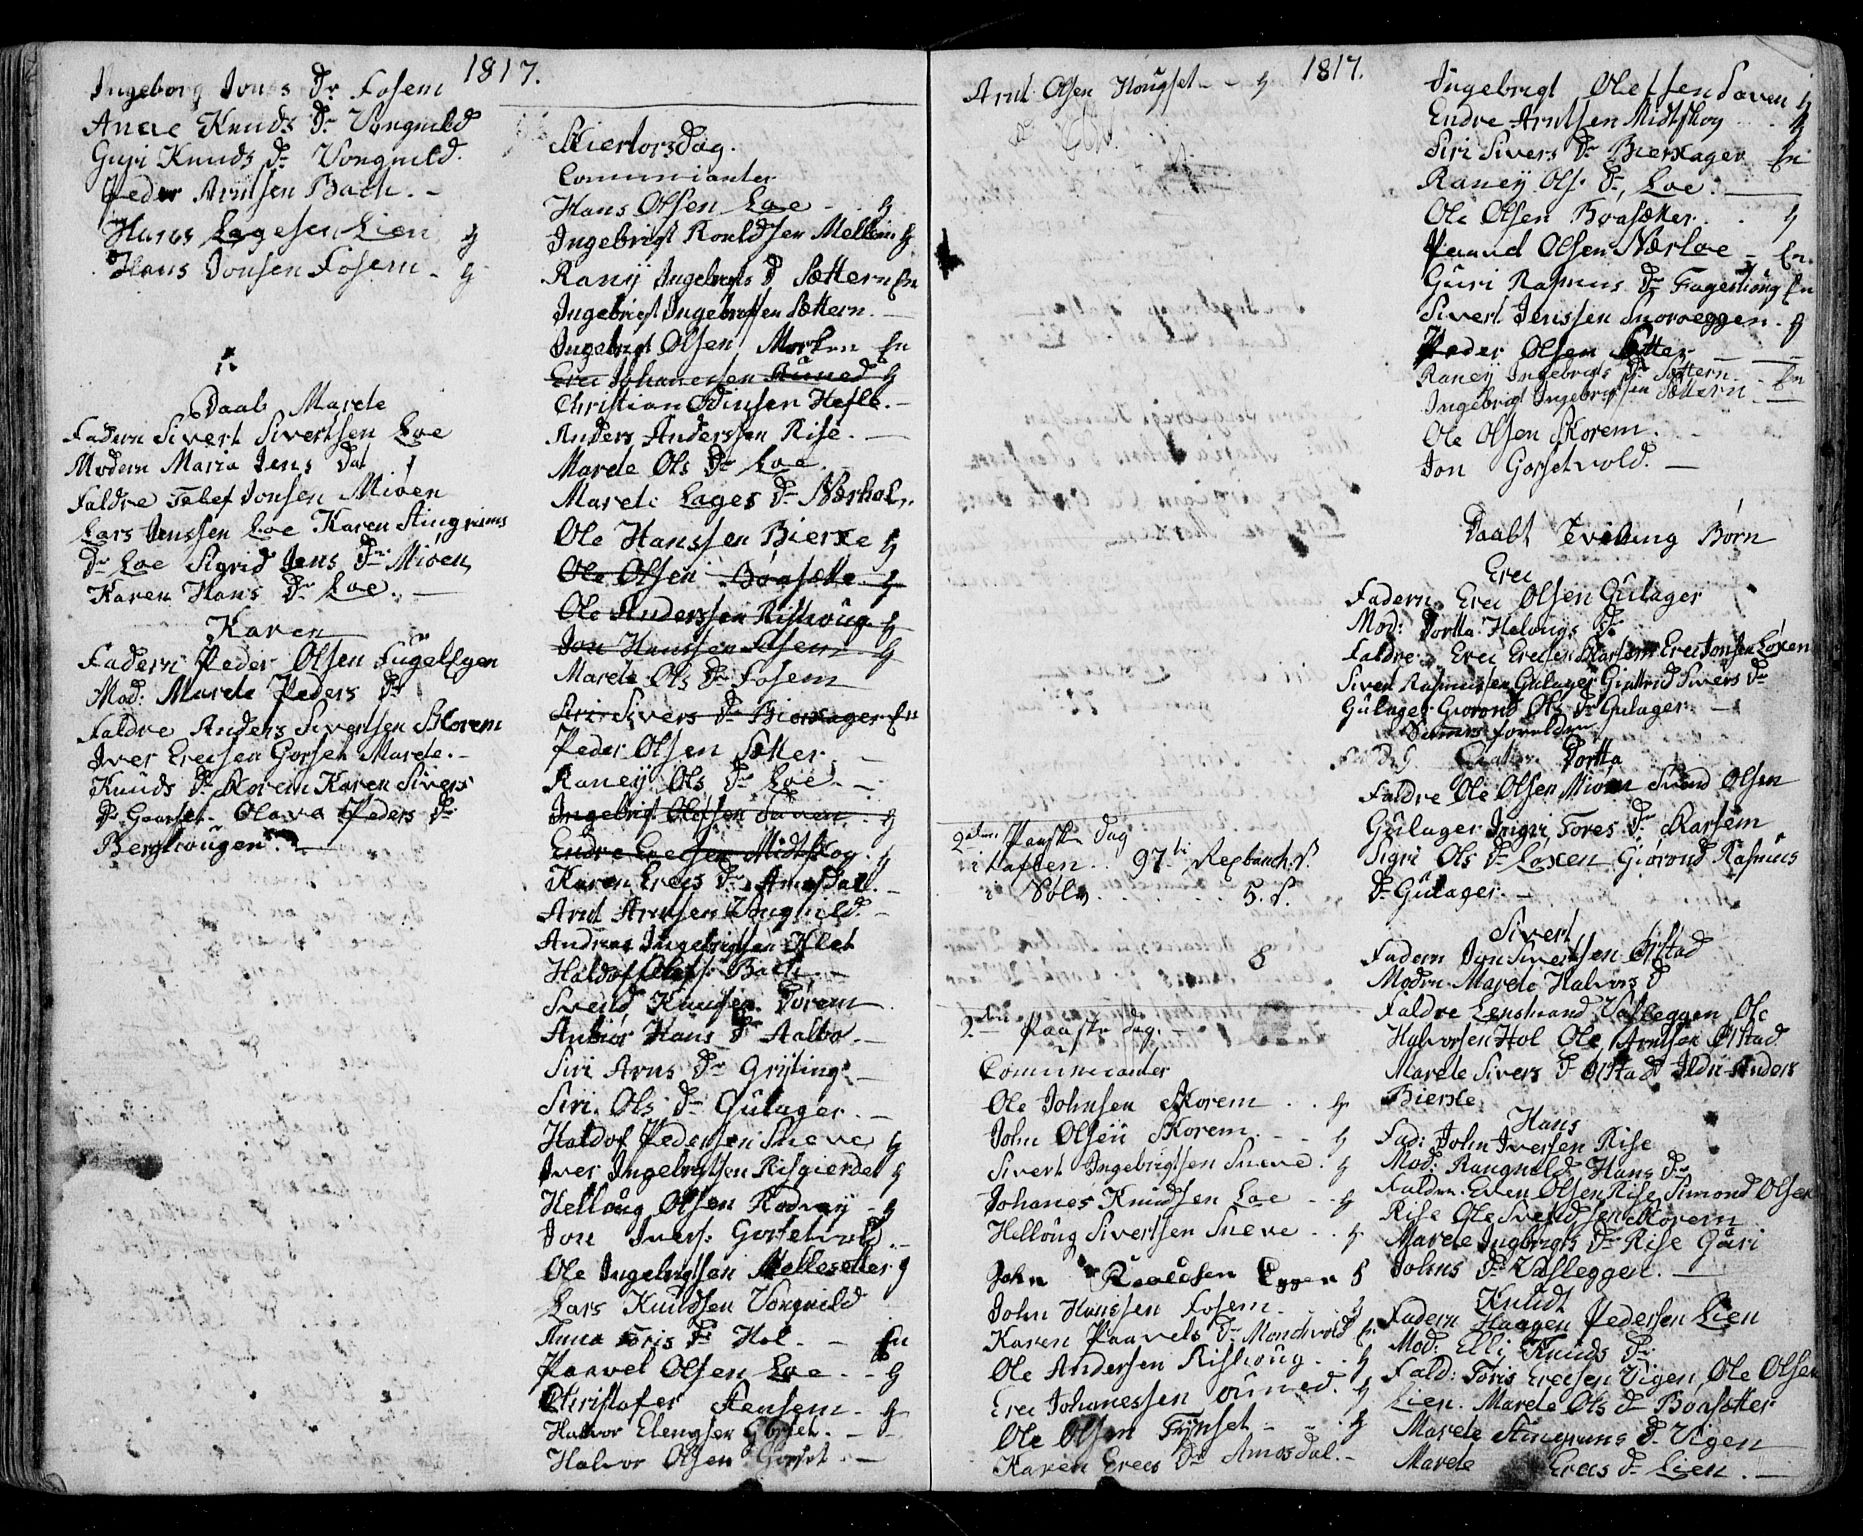 1817.
Ingeborg Jons Dr Fosem
Anne Knuds Dr Vongnild
Guri Knuds Dr Vongnild.
Peder Arntsen Bach. -
Hans Lagesen Lien
Hans Jonsen Fosem -
Daab Marete
Fadern Sivert Sivertsen Loe
Modern Maria Jens Dat
Faldre Tolef Jonsen Mioen
Lars Jenssen Loe Karen Stingrims
Dr Loe Sigrid Jens Dr Mioen
Karen Hans Dr Loe. -
Karen
Fadern Peder Olsen Fugelegen
Mod: Marete Peders Dr
Faldre Anders Sivertsen Skorem
Iver Erecsen Gorset Marete. -
Knuds Dr Skorem Karen Sivers
Dr Gorset - Olava Peders Dr
Berghougen. -
Skiertorsdag.
Communianter
Hans Olsen Loe
Ingebrigt Roaldsen Mellem
Raney Ingebrigts D Sættern En
Ingebrigt Ingebrigtsen Sættern. -
Ingebrigt Olsen Morken En
Erec Johanessen Auned
Christian Odinsen Hefle. -
Anders Anderssen Rise. -
Marete Ols Dr Loe.
Marete Lages Dr Nærloe.
Ole Hanssen Bierke
Ole Olsen Boasætte
Ole Anderssen Rishoug
Jon Hanssen Fosem
Marete Ols Dr Fosem
Siri Sivers Dr Bierkager En
Peder Olsen Sætter. -
Raney Ols Dr Loe. -
Ingebrigt Olefsen Saven
Endre Erecsen Midtskog
Karen Erecs Dr Amosdal. -
Arnt Arntsen Vongnild. -
Andreas Ingebrigtsen Klet
Haldo Olefs: Bach. -
Svend Knudsen Dorem
Anbior Hans Dr Aalbo. -
Siri Arns Dr Gryting -
Siri Ols Dr Gulager. -
Haldo Pedersen Sneve
Iver Ingebrigtsen Risgierdet
Helloug Olsen Rodvey
Jon Ivers: Gorsetvold. -
Ole Ingebrigtsen Mellesetter
Lars Knudsen Vongnild
Anna Toris Dr Hol. - En
Paavel Olsen Loe. -
Christofer Stensem -
Halvor Elengsen Gorset. -
Halvor Olsen Gorset. -
1817.
Arnt Olsen Hougset - -
2den Paaske Dag
i Taflen . . 97 ti Rexbanck.s
i Sølv . . . . . 5. s.
8
2den Paaske dag. -
Communicanter
Ole Johnsen Skorem . .
John Olsen Skorem. - -
Sivert Ingebrigtsen Sneve .
Johanes Knudsen Loe - -
Helloug Sivertsen Sneve . .
John Roaldsen Eggen
John Hanssen Fosem. . .
Karen Paavels Dr Monchvold En
Ole Andersen Rishoug . .
Erec Johanessen Ouned.
Ole Olsen Fynset - -
Karen Erecs Dr Amosdal. -
Ingebrigt Olefsen Saven
Endre Arntsen Midtskog . .
Siri Sivers Dr Bierkager En
Raney Ols: Dr Loe. -
Ole Olsen Boasætter . .
Paavel Olsen Nærloe - En.
Guri Rasmus Dr Fagerhoug En
Sivert Jenssen Snoreggen.
Peder Olsen Sætter - -
Raney Ingebrigts Dr Sættern - En
Ingebrigt Ingebrigtsen Sættern. -
Ole Olsen Skorem. -
Jon Gorsetvold. -
Daabt Tvilling Børn
Erec
Fadern Erec Olsen Gulager
Mod: Dortta Helougs Dr
Faldre. Erec Erecsen Skarsem Erec Jonsen Loxen
Siver Rasmussen Gulager Giertrud Sivers Dr
Gulager Giorond Ols Dr Gulager. -
Samme foreldre
Dortta
Faldre Ole Olsen Mioen Svend Olsen
Gulager Ingri Tores Dr Skarsem
Sigri Ols Dr Loxen Giorond Rasmus
Dr Gulager. -
Sivert
Fadern Jon Sivertsen Ørstad
Modrn Marete Halvors D
Faldre Lenstrand Vasleggen Ole
Halvorsen Hol Ole Arntsen Ørstad
Marete Sivers D Orstad Ildri Anders
Bierke
Hans
Fad: John Iversen Rise
Mod: Rangnild Hans Dr
Faldre. Even Olsen Rise Simond Olsen
Rise Ole Svendsen Skorem
Marete Ingbrigts Dr Rise Guri
Johns Dr Vasleggen. -
Knudt
Fadern Haagen Pedersen Lien
Mod: Elli Knuds Dr
Fald: Toris Erecsen Vigen, Ole Olsen
Lien. Marete Ols Dr Boasætter
Marete Stingrims D Vigen
Marete Erecs Dr Lien. -